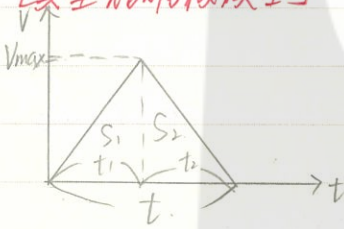 V
Vmax
S₁ S₂
t₁ t₂
t
t.